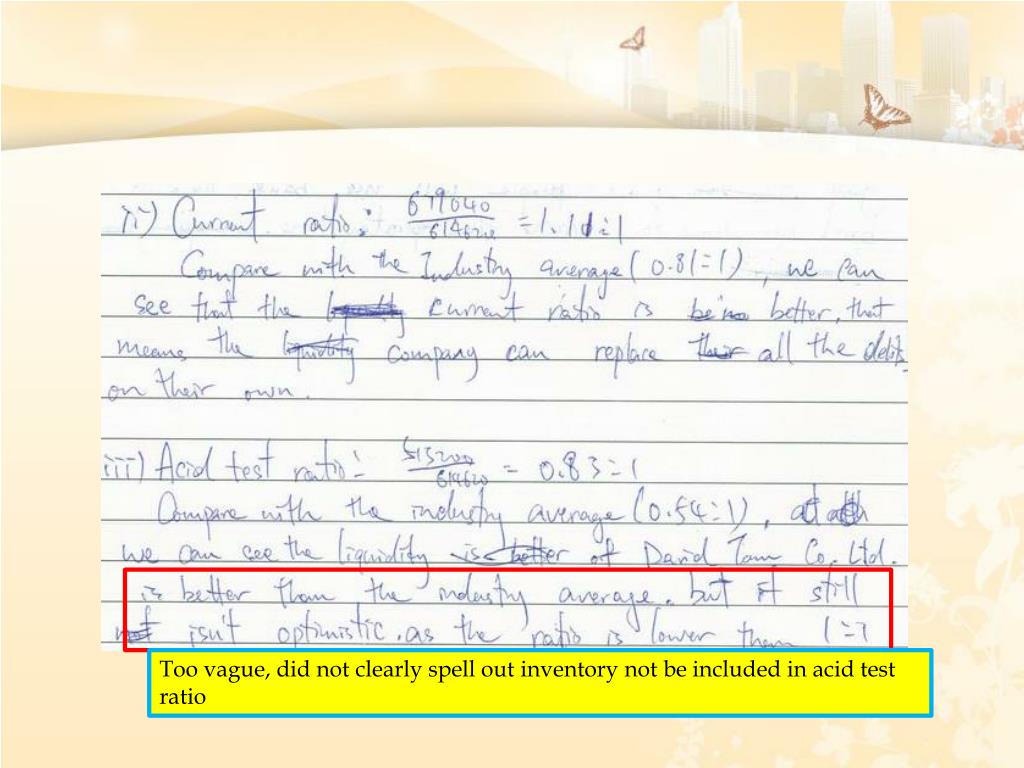 ii) Current ratio: 679640/614620 = 1.11:1
Compare with the Industry average (0.81:1), we can
see that the current ratio is better, that
means the company can replace all the debts
on their own.
iii) Acid test ratio: 513200/614620 = 0.83:1
Compare with the industry average (0.54:1),
we can see the liquidity of David Tam Co. Ltd.
is better than the industry average. but it still
isn't optimistic. as the ratio is lower than 1:1
Too vague, did not clearly spell out inventory not be included in acid test
ratio